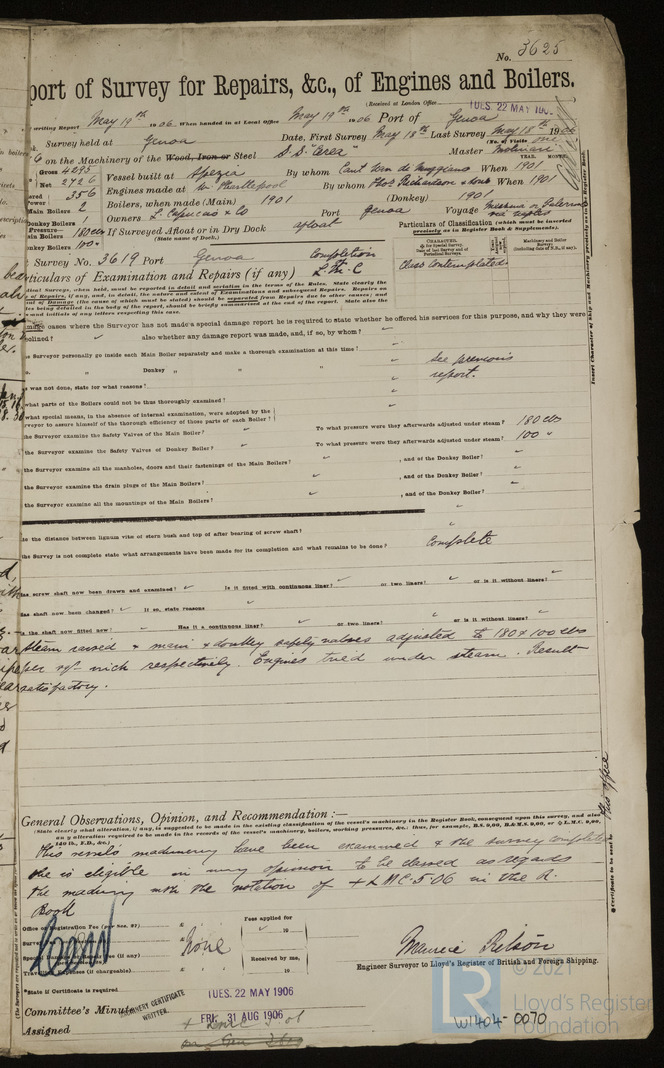 No. 3625
port of Survey for Repairs, &c., of Engines and Boilers.
(Received at London Office TUES. 22 MAY 190
writing Report May 19th 1906 When handed in at Local Office May 19th 1906 Port of Genoa
Survey held at Genoa Date, First Survey May 18th Last Survey May 18th 1906
(No. of Visits one
6 on the Machinery of the Wood, Iron or Steel S.S. "Cerea" Master
YEAR. MONTH.
Gross 4295 Vessel built at Spezia By whom When 1901
Net 2726 Engines made at W. Hartlepool By whom Thos Richardson & Sons When 1901
Power 356
Main Boilers 2 Boilers, when made (Main) 1901 (Donkey) 1901
Donkey Boilers 1 Owners L. Capuccio & Co Port Genoa Voyage Messina or Palermo via Naples
Pressure—
Main Boilers 180 lbs If Surveyed Afloat or in Dry Dock afloat
(State name of Dock.)
Donkey Boilers 100 "
Particulars of Classification (which must be inserted precisely as in Register Book & Supplements).
Survey No. 3619 Port Genoa Completion
Class contemplated
rticulars of Examination and Repairs (if any)
cases where the Surveyor has not made a special damage report he is required to state whether he offered his services for this purpose, and why they were
clined? " also whether any damage report was made, and, if so, by whom?
the Surveyor personally go inside each Main Boiler separately and make a thorough examination at this time?
See previous report.
" Donkey " "
was not done, state for what reasons?
what parts of the Boilers could not be thoroughly examined?
what special means, in the absence of internal examination, were adopted by the
rveyor to assure himself of the thorough efficiency of those parts of each Boiler?
the Surveyor examine the Safety Valves of the Main Boiler? To what pressure were they afterwards adjusted under steam? 180 lbs
the Surveyor examine the Safety Valves of Donkey Boiler? To what pressure were they afterwards adjusted under steam? 100 "
the Surveyor examine all the manholes, doors and their fastenings of the Main Boilers? , and of the Donkey Boiler?
the Surveyor examine the drain plugs of the Main Boilers? , and of the Donkey Boiler?
the Surveyor examine all the mountings of the Main Boilers? , and of the Donkey Boiler?
is the distance between lignum vitæ of stern bush and top of after bearing of screw shaft?
the Survey is not complete state what arrangements have been made for its completion and what remains to be done? Complete
Has screw shaft now been drawn and examined? Is it fitted with continuous liner? or two liners? or is it without liners?
Has shaft now been changed? If so, state reasons
Is the shaft now fitted new? Has it a continuous liner? or two liners? or is it without liners?
Steam raised & main & donkey safety valves adjusted to 180 & 100 lbs
per sq. inch respectively. Engines tried under steam. Result
satisfactory.
General Observations, Opinion, and Recommendation :—
(State clearly what alteration, if any, is suggested to be made in the existing classification of the vessel's machinery in the Register Book, consequent upon this survey, and also
any alteration required to be made in the records of the vessel's machinery, boilers, working pressures, &c.: thus, for example, B.S. 9,00, B.& M.S. 9,00, or L.M.C. 9,00,
140 lb., F.D., &c.)
This vessel's machinery have been examined & the survey completed
she is eligible in my opinion to be classed as regards
the machinery with the notation of + LMC 5·06 in the R.
Book
Office or Registration Fee (per Sec. 27)
Fees applied for
19
None
Received by me,
19
Travelling Expenses (if chargeable)
Engineer Surveyor to Lloyd's Register of British and Foreign Shipping.
*State if Certificate is required
Committee's Minute
MACHINERY CERTIFICATE WRITTEN.
TUES. 22 MAY 1906
FRI. 31 AUG 1906
Assigned + LMC 5.06
© 2021
Lloyd's Register
Foundation
LR
W1404-0070